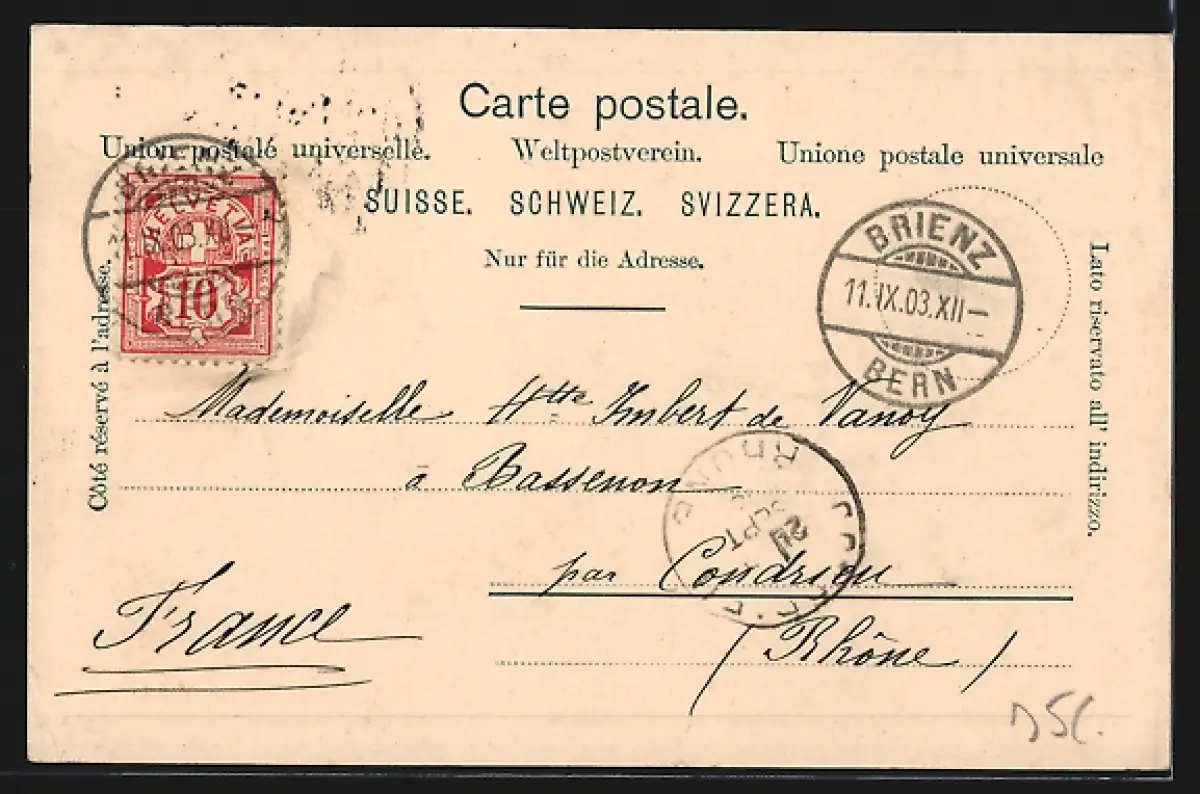 Carte postale.
Union postale universelle. Weltpostverein. Unione postale universale
SUISSE. SCHWEIZ. SVIZZERA.
Nur für die Adresse.
Côté réservé à l'adresse.
Lato riservato all' indirizzo.
HELVETIA
10
BRIENZ
11.IX.03.XII–
BERN
Mademoiselle Htte Imbert de Vanoy
à Bassenon
par Condrieu
(Rhône)
France
RHONE
SEPT